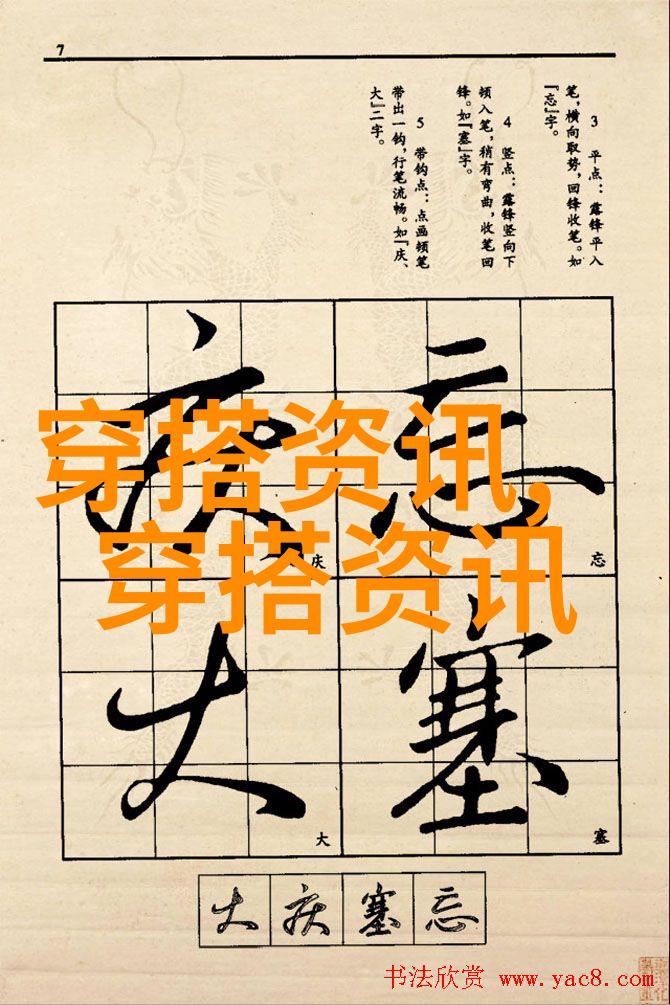 7
3 平点：露锋平入
笔，横向取势，回锋收笔。如
『忘』字。
4 竖点：露锋竖向下
顿入笔，稍有弯曲，收笔回
锋。如『塞』字。
5 带钩点：点画顿笔
带出一钩，行笔流畅。如『庆、
大』二字。
忘
庆
穿搭资讯，
穿搭资讯
忘
庆
塞
大
塞
大
大庆塞忘
书法欣赏 www.yac8.com